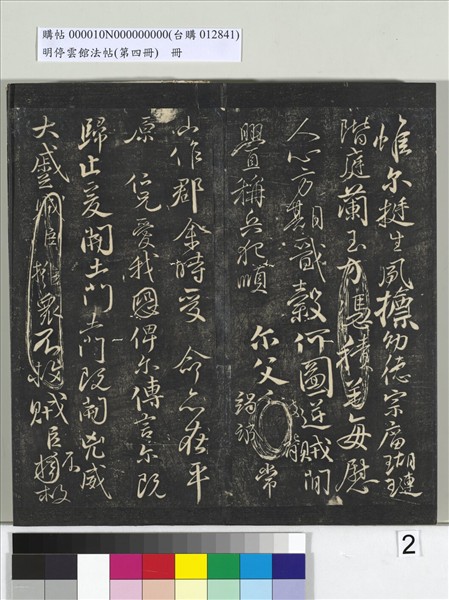 購帖 000010N000000000(台購 012841)
明停雲館法帖(第四冊) 冊
惟尔挺生夙標幼德宗廟瑚璉
階庭蘭玉方憑積善每慰
人心方期戩穀何圖逆賊間
釁稱兵犯順 尔父 竭誠 常
山作郡余時受 命亦在平
原 仁兄愛我恐俾尔傳言尔既
歸止爰開土門土門既開兇威
大蹙賊臣擁眾不救賊臣不擁救
2